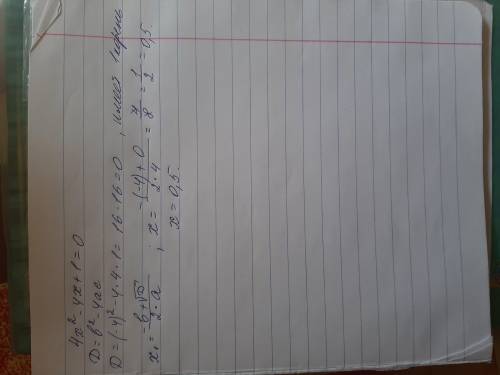 4x² - 4x + 1 = 0
D = b² - 4ac
D = (-4)² - 4·4·1 = 16 - 16 = 0, имеет 1 корень
x₁ = (-b + √D)/(2·a) ; x = (-(-4) + 0)/(2·4) = 4/8 = 1/2 = 0,5
x = 0,5.